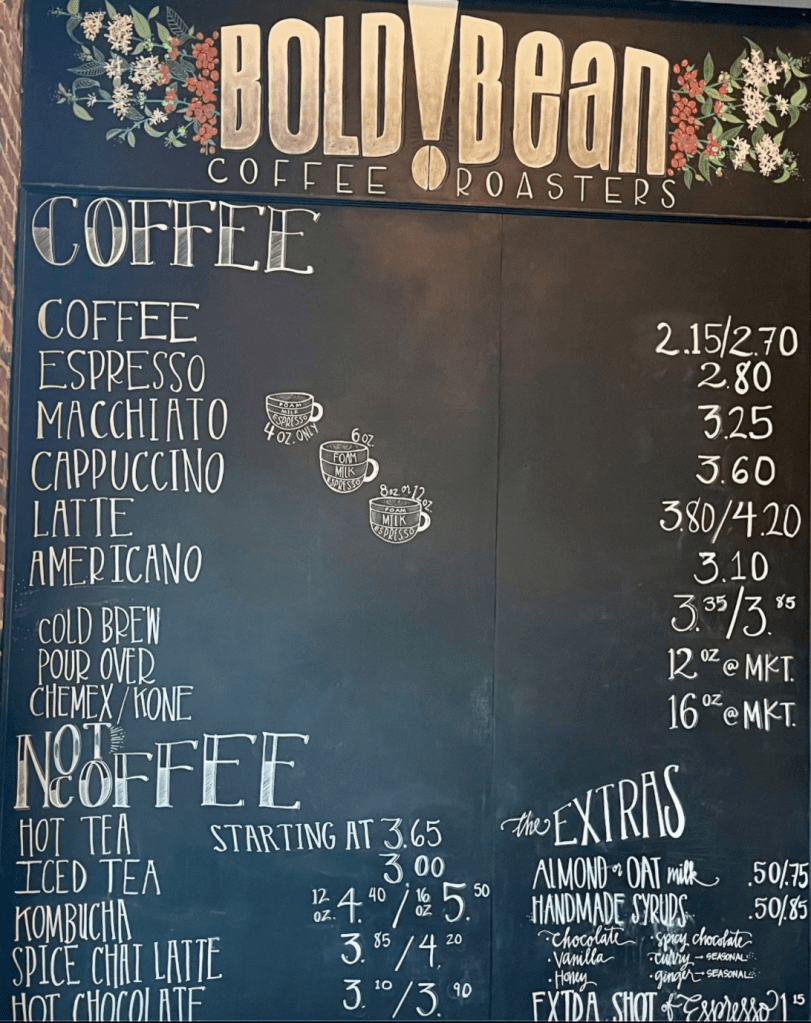 BOLD!Bean
COFFEE ROASTERS
COFFEE
COFFEE 2.15/2.70
ESPRESSO 2.80
MACCHIATO FOAM MILK ESPRESSO 4 OZ. ONLY 3.25
CAPPUCCINO 6 OZ. FOAM MILK ESPRESSO 3.60
LATTE 8 OZ or 12 OZ. FOAM MILK ESPRESSO 3.80/4.20
AMERICANO 3.10
COLD BREW 3.35/3.85
POUR OVER 12 OZ @ MKT.
CHEMEX/KONE 16 OZ @ MKT.
NOT COFFEE
HOT TEA STARTING AT 3.65
ICED TEA 3.00
KOMBUCHA 12 OZ. 4.40/16 OZ 5.50
SPICE CHAI LATTE 3.85/4.20
HOT CHOCOLATE 3.10/3.90
the EXTRAS
ALMOND or OAT milk .50/.75
HANDMADE SYRUPS .50/.85
·Chocolate ·spicy chocolate
·Vanilla ·curry→SEASONAL
·Honey ·ginger→SEASONAL
EXTRA SHOT of Espresso 1.15